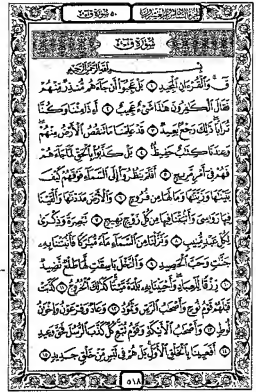 ٥٠ سورة ق
سورة ق
بِسْمِ اللَّهِ الرَّحْمَٰنِ الرَّحِيمِ
قٓ وَالْقُرْءَانِ الْمَجِيدِ ١ بَلْ عَجِبُوٓا أَن جَآءَهُم مُّنذِرٌ مِّنْهُمْ
فَقَالَ الْكَٰفِرُونَ هَٰذَا شَىْءٌ عَجِيبٌ ٢ أَءِذَا مِتْنَا وَكُنَّا
تُرَابًا ذَٰلِكَ رَجْعٌ بَعِيدٌ ٣ قَدْ عَلِمْنَا مَا تَنقُصُ الْأَرْضُ مِنْهُمْ
وَعِندَنَا كِتَٰبٌ حَفِيظٌ ٤ بَلْ كَذَّبُوا بِالْحَقِّ لَمَّا جَآءَهُمْ
فَهُمْ فِىٓ أَمْرٍ مَّرِيجٍ ٥ أَفَلَمْ يَنظُرُوٓا إِلَى السَّمَآءِ فَوْقَهُمْ كَيْفَ
بَنَيْنَٰهَا وَزَيَّنَّٰهَا وَمَا لَهَا مِن فُرُوجٍ ٦ وَالْأَرْضَ مَدَدْنَٰهَا وَأَلْقَيْنَا
فِيهَا رَوَٰسِىَ وَأَنبَتْنَا فِيهَا مِن كُلِّ زَوْجٍ بَهِيجٍ ٧ تَبْصِرَةً وَذِكْرَىٰ
لِكُلِّ عَبْدٍ مُّنِيبٍ ٨ وَنَزَّلْنَا مِنَ السَّمَآءِ مَآءً مُّبَٰرَكًا فَأَنبَتْنَا بِهِ
جَنَّٰتٍ وَحَبَّ الْحَصِيدِ ٩ وَالنَّخْلَ بَاسِقَٰتٍ لَّهَا طَلْعٌ نَّضِيدٌ
١٠ رِّزْقًا لِّلْعِبَادِ وَأَحْيَيْنَا بِهِ بَلْدَةً مَّيْتًا كَذَٰلِكَ الْخُرُوجُ ١١ كَذَّبَتْ
قَبْلَهُمْ قَوْمُ نُوحٍ وَأَصْحَٰبُ الرَّسِّ وَثَمُودُ ١٢ وَعَادٌ وَفِرْعَوْنُ وَإِخْوَٰنُ
لُوطٍ ١٣ وَأَصْحَٰبُ الْأَيْكَةِ وَقَوْمُ تُبَّعٍ كُلٌّ كَذَّبَ الرُّسُلَ فَحَقَّ وَعِيدِ
١٤ أَفَعَيِينَا بِالْخَلْقِ الْأَوَّلِ بَلْ هُمْ فِى لَبْسٍ مِّنْ خَلْقٍ جَدِيدٍ ١٥
٥١٨